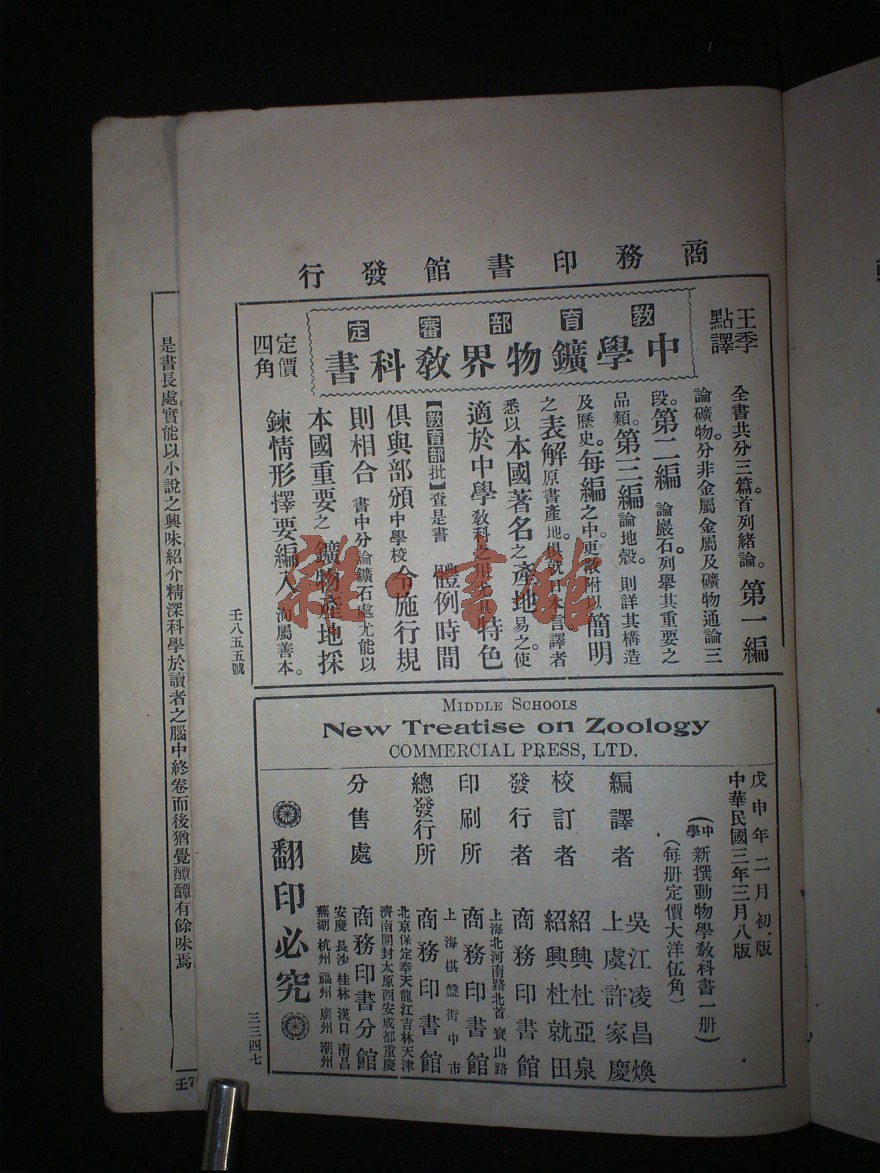 商務印書館發行
王季
點譯
教育部審定
中學鑛物界教科書
定價
四角
全書共分三篇。首列緒論。第一編
論礦物。分非金屬金屬及礦物通論三
段。第二編論嚴石。列舉其重要之
品類。第三編論地殼。則詳其構造
及歷史。每編之中。更散附以簡明
之表解原書產地。俱就日本言。譯者
悉以本國著名之產地易之。使
適於中學教科之用尤具特色
【教育部批】查是書體例時間
俱與部頒中學校令施行規
則相合書中分論鑛石處尤能以
本國重要之鑛物產地採
鍊情形擇要編入洵屬善本。
壬八五五號
MIDDLE SCHOOLS
New Treatise on Zoology
COMMERCIAL PRESS, LTD.
戊申年二月初版
中華民國三年三月八版
(中學新撰動物學教科書一册)
(每册定價大洋伍角)
編譯者 吳江凌昌煥
上虞許家慶
校訂者 紹興杜亞泉
紹興杜就田
發行者 商務印書館
上海北河南路北首寶山路
印刷所 商務印書館
上海棋盤街中市
總發行所 商務印書館
北京保定奉天龍江吉林天津
濟南開封太原西安成都重慶
分售處 商務印書分館
安慶長沙桂林漢口南昌
蕪湖杭州福州廣州潮州
翻印必究
三三四七
是書長處。實能以小說之興味。紹介精深科學於讀者之腦中。終卷而後猶覺醰醰有餘味焉
壬7
雜·書館